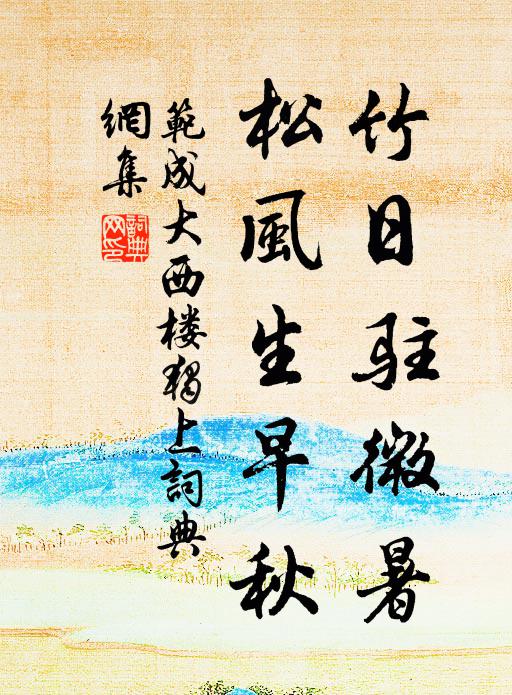 竹日駐微暑
松風生早秋
範成大西楼獨上詞典
網集
詞典
网印